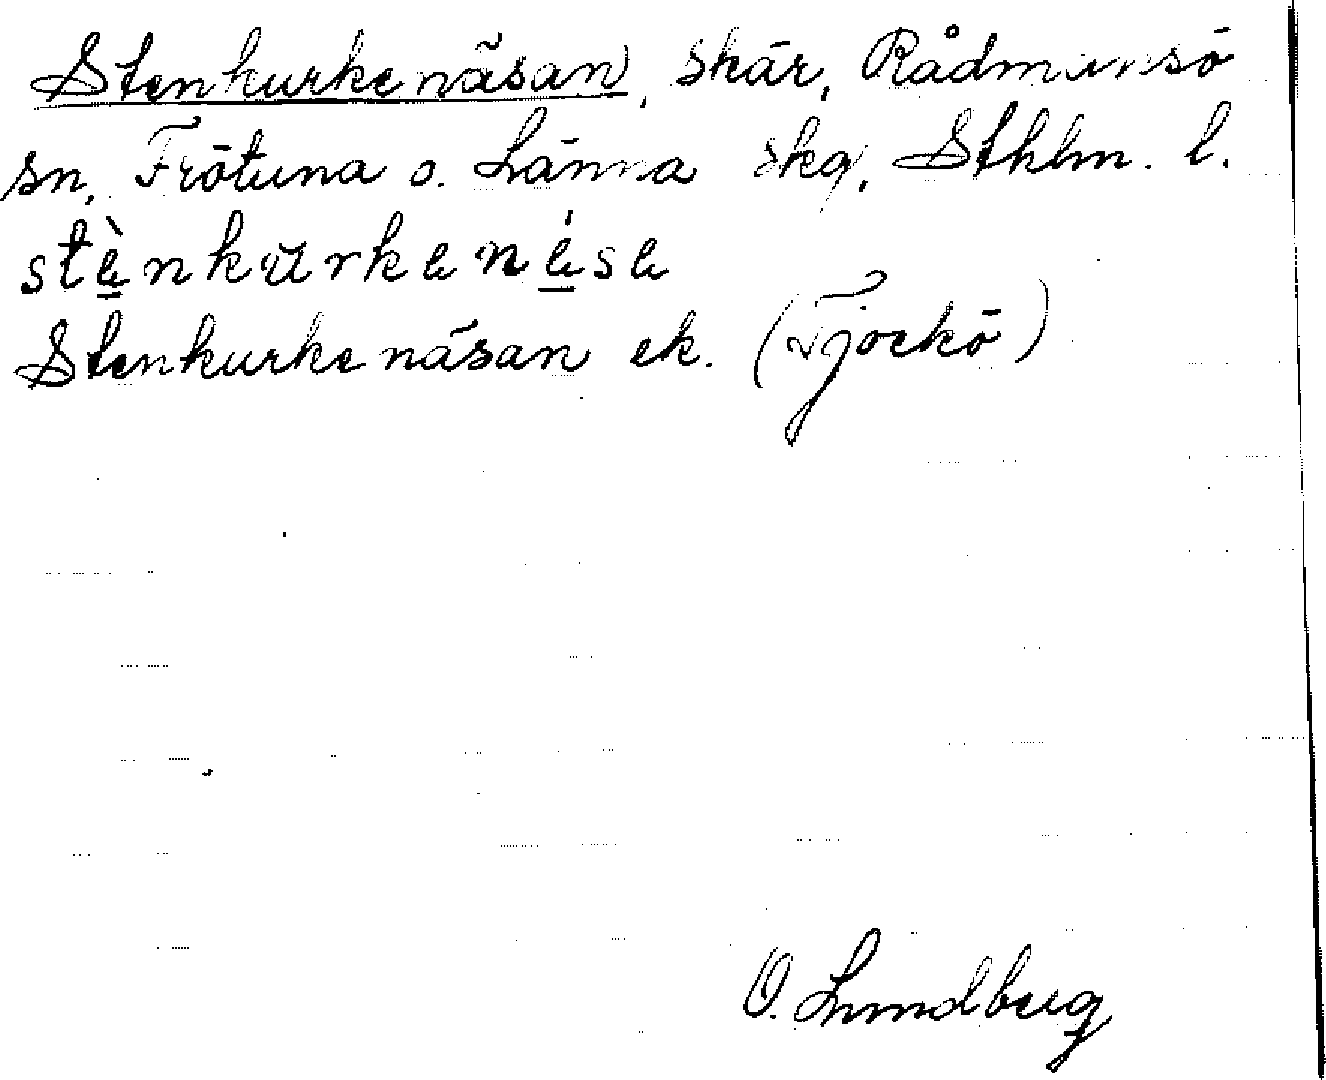 Stenkurkenäsan, skär, Rådmansö
sn, Frötuna o. Länna skg, Sthlm. l.
stènkurkenése
Stenkurkenäsan ek. (Tjockö)
O. Lundberg